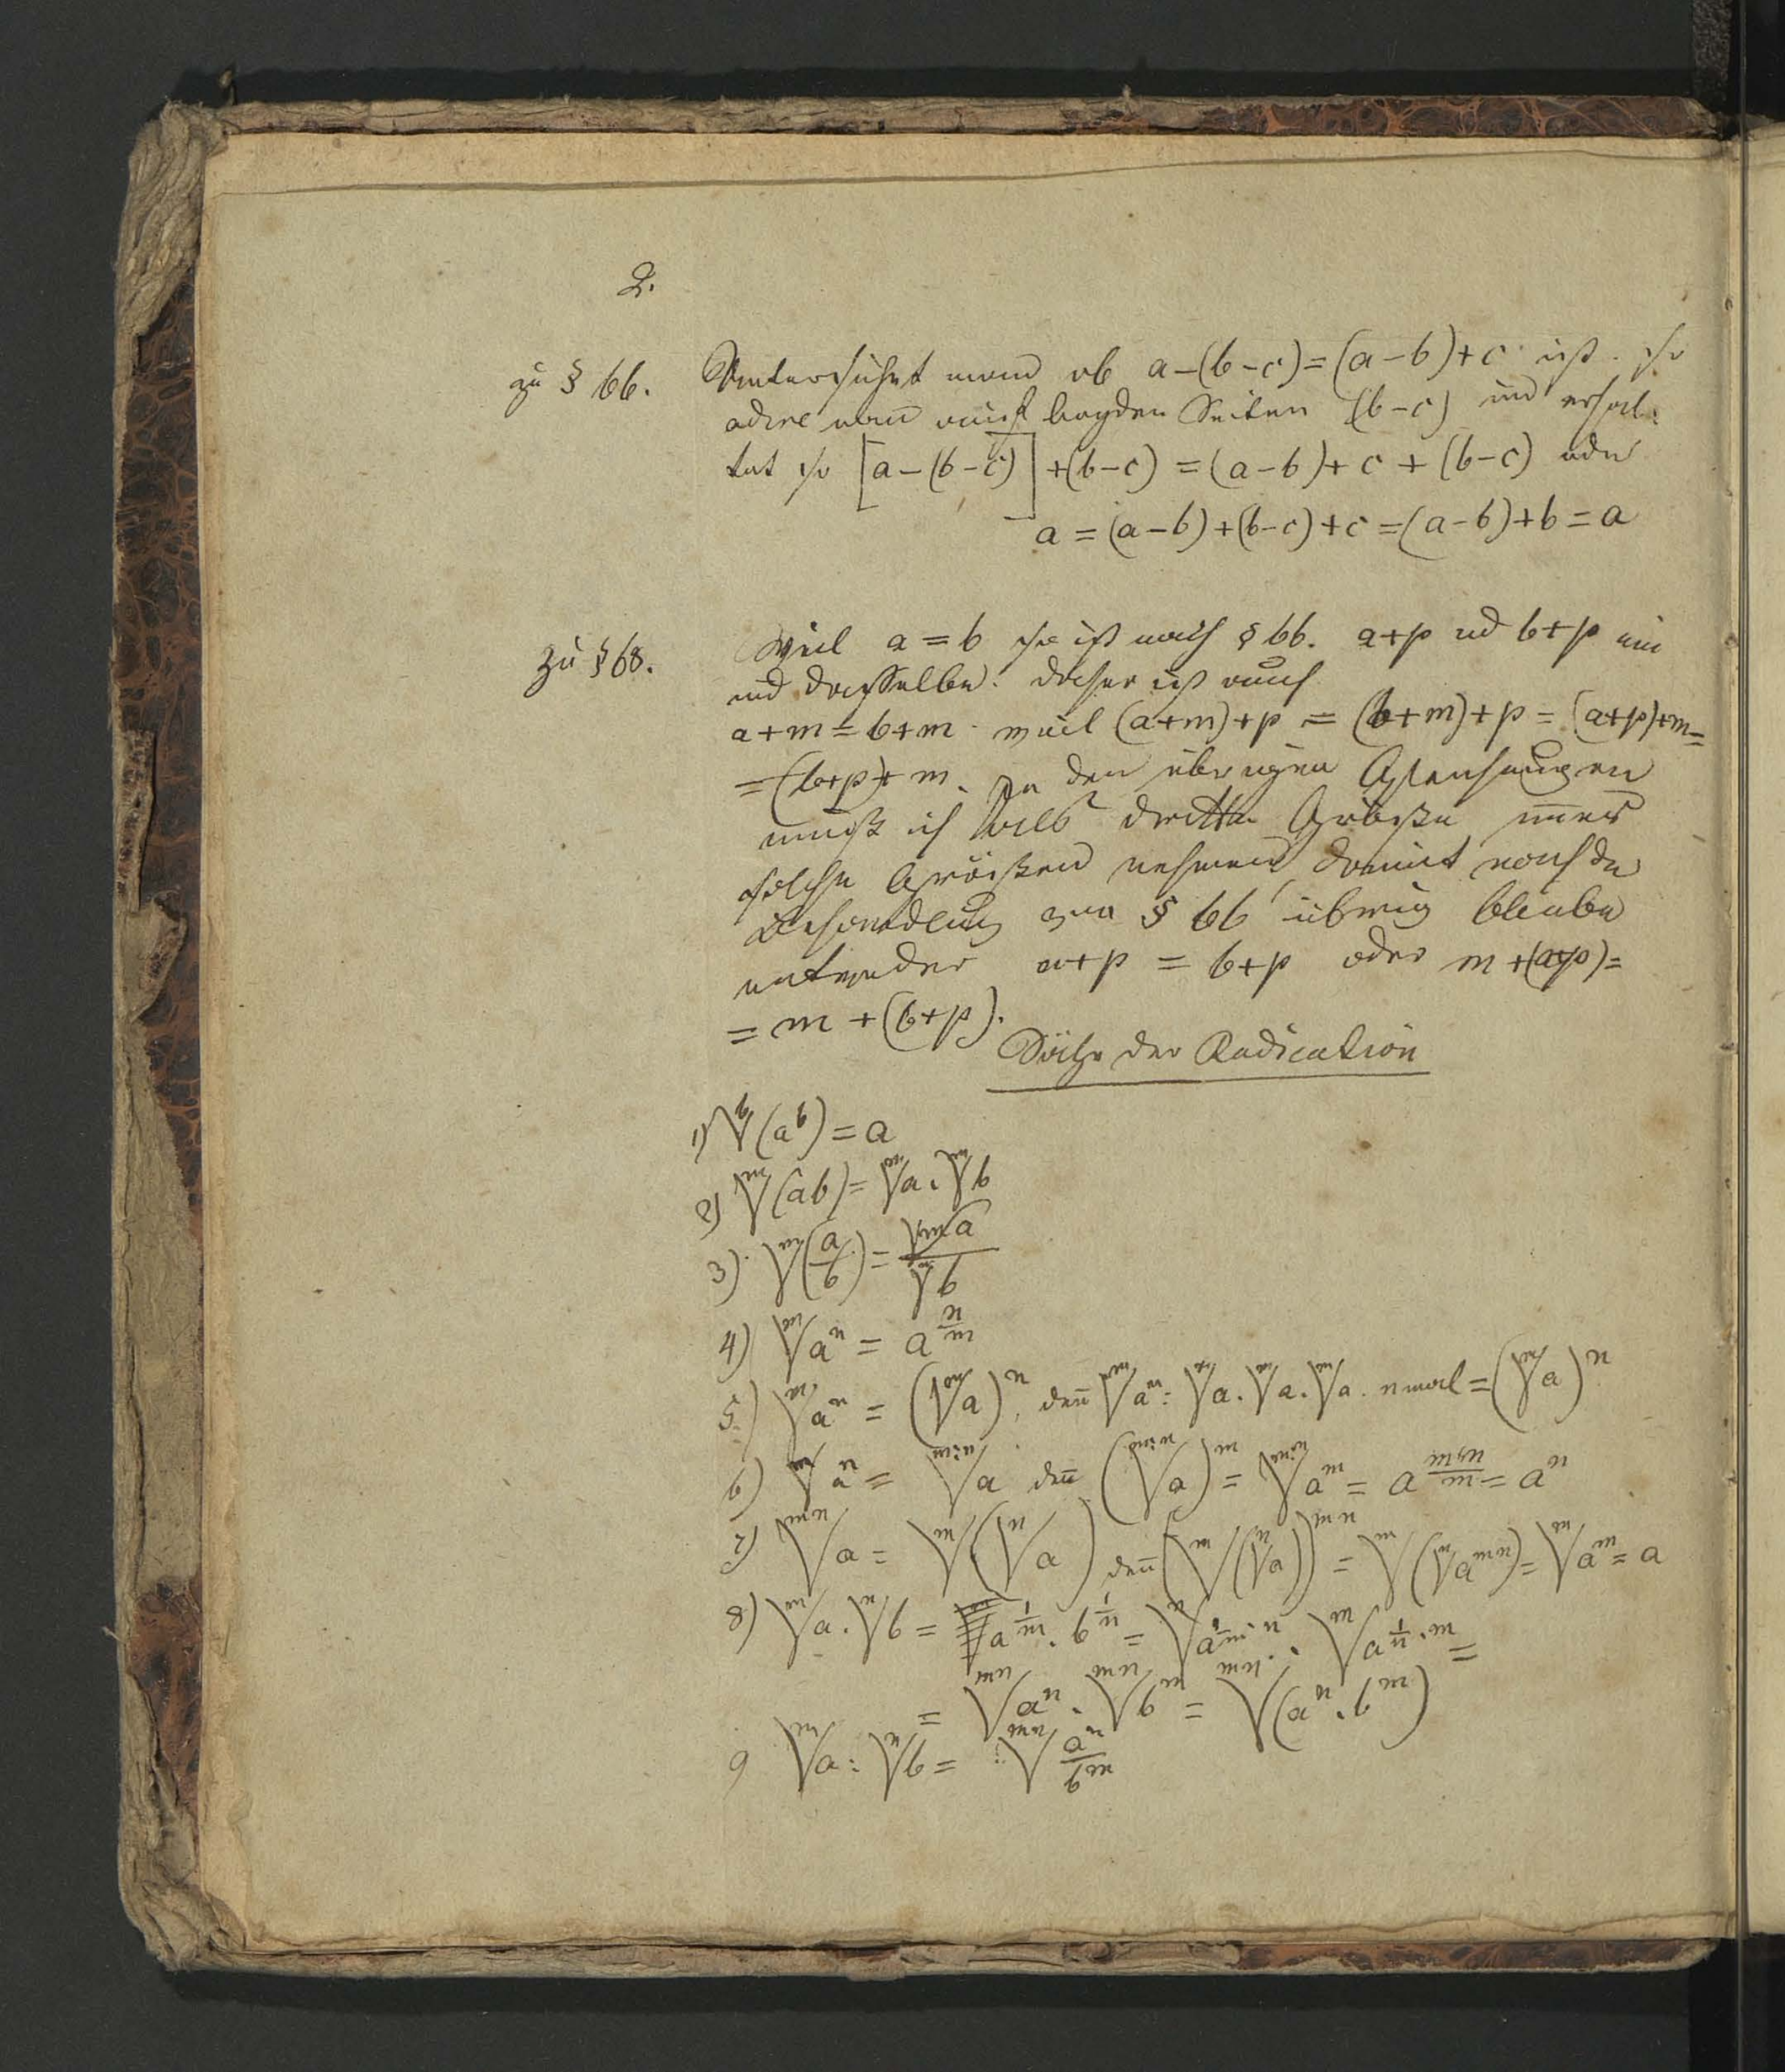 2.
zu § 66. Untersuchet man ob a-(b-c)=(a-b)+c ist. so
adire man auf beyden Seiten (b-c) und erhal-
tet so [a-(b-c)]+(b-c)=(a-b)+c+(b-c) oder
a=(a-b)+(b-c)+c=(a-b)+b=a
zu § 68. Weil a=b so ist nach § 66. a+p ud b+p ein
und dasselbe. daher ist auch
a+m=b+m weil (a+m)+p=(b+m)+p=(a+p)+m=
=(b+p)+m. In den übrigen Gleichungen
muß ich als dritte Größe
solche Größen nehmen, damit nach der
Behandlung § 66 übrig bleibe
entweder a+p=b+p oder m+(a+p)=
=m+(b+p).
Sätze der Radication
1) ᵇ√(aᵇ)=a
2) ᵐ√(ab)=ᵐ√a.ᵐ√b
3) ᵐ√(a/b)=ᵐ√a/ᵐ√b
4) ᵐ√aⁿ=a^(n/m)
5) ᵐ√aⁿ=(ᵐ√a)ⁿ, deñ ᵐ√aⁿ=ᵐ√a.ᵐ√a.ᵐ√a. n mal=(ᵐ√a)ⁿ
6) deñ =aⁿ
7) ᵐⁿ√a=ᵐ√(ⁿ√a) deñ (ᵐ√(ⁿ√a))ᵐⁿ=ᵐ√(ⁿ√aᵐⁿ)=ᵐ√aᵐ=a
8) ᵐ√a.ⁿ√b=a^(1/m).b^(1/n)=
=ᵐⁿ√aⁿ.ᵐⁿ√bᵐ=ᵐⁿ√(aⁿ.bᵐ)
9 ᵐ√a:ⁿ√b=ᵐⁿ√aⁿ/bᵐ